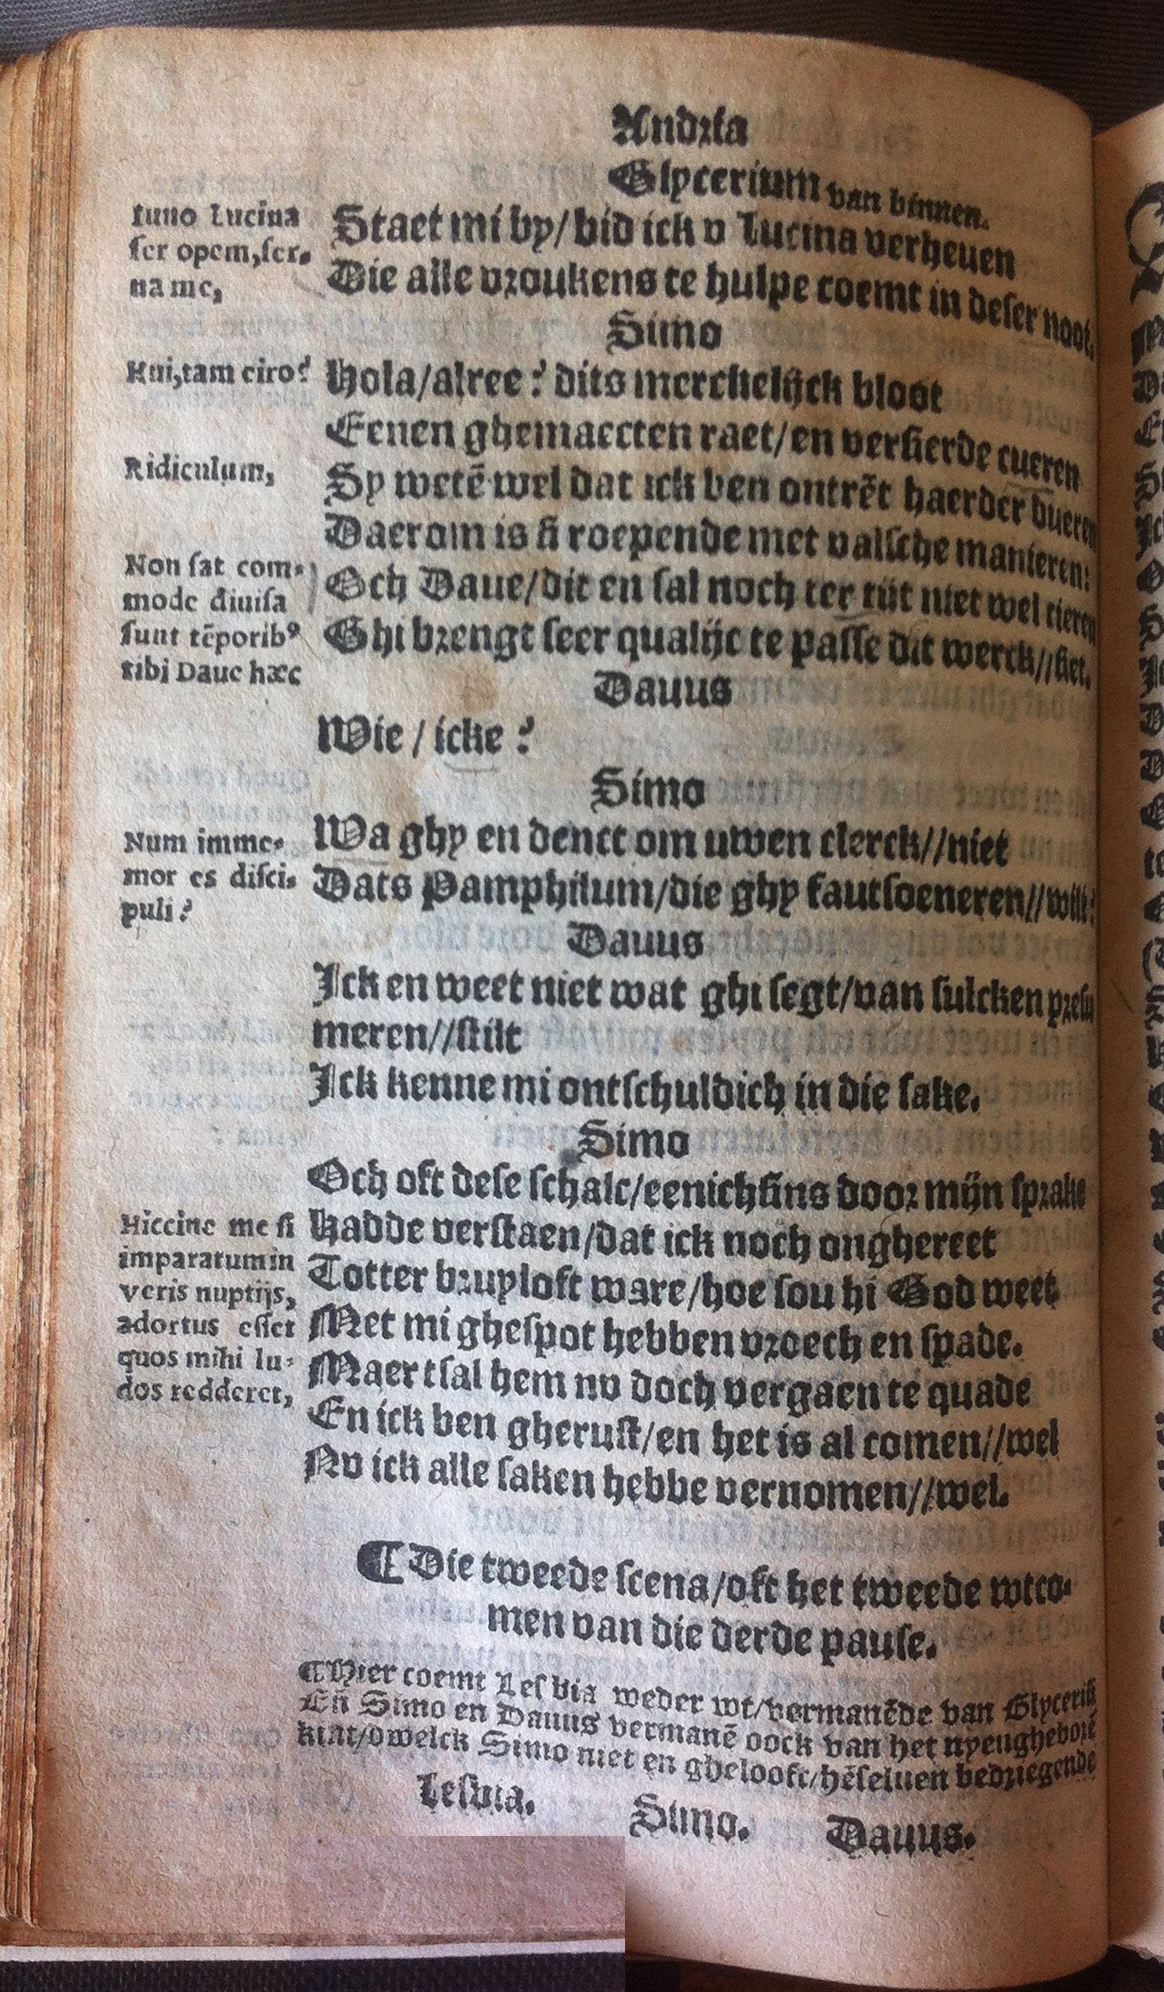 Andria
Glycerium van binnen.
Iuno Lucina
fer opem, ser-
na me,
Staet mi by/ bid ick v Lucina verheuen
Die alle vroukens te hulpe coemt in deser noot.
Simo
Hui, tam cito?
Hola/alree? dits merckelijck bloot
Eenen ghemaecten raet/en versierde cueren
Ridiculum,
Sy wetē wel dat ick ben ontrēt haerder dueren
Daerom is si roepende met valsche manieren:
Non sat com-
mode diuisa
sunt tēporibꝰ
tibi Daue hæc
Och Daue/dit en sal noch ter tijt niet wel tieren
Ghi brengt seer qualijc te passe dit werck//siet.
Dauus
Wie / icke?
Simo
Num imme-
mor es disci-
puli?
Wa ghy en denct om uwen clerck//niet
Dats Pamphilum/die ghy fautsoeneren//wilt?
Dauus
Ick en weet niet wat ghi segt/van sulcken presu
meren//stilt
Ick kenne mi ontschuldich in die sake.
Simo
Och oft dese schalc/eenichsins door mijn sprake
Hiccine me si
imparatum in
veris nuptijs,
adortus esset
quos mihi lu-
dos redderet,
Hadde verstaen/dat ick noch onghereet
Totter bruyloft ware/hoe sou hi God weet
Met mi ghespot hebben vroech en spade.
Maer tsal hem nv doch vergaen te quade
En ick ben gherust/en het is al comen//wel
Nv ick alle saken hebbe vernomen//wel.
¶ Die tweede scena/oft het tweede wtco-
men van die derde pause.
¶ Hier coemt Lesbia weder wt/vermanēde van Glyceriū
En Simo en Dauus vermanē oock van het nyeughebore
kint/dwelck Simo niet en ghelooft/hēseluen bedriegende
Lesbia. Simo. Dauus.